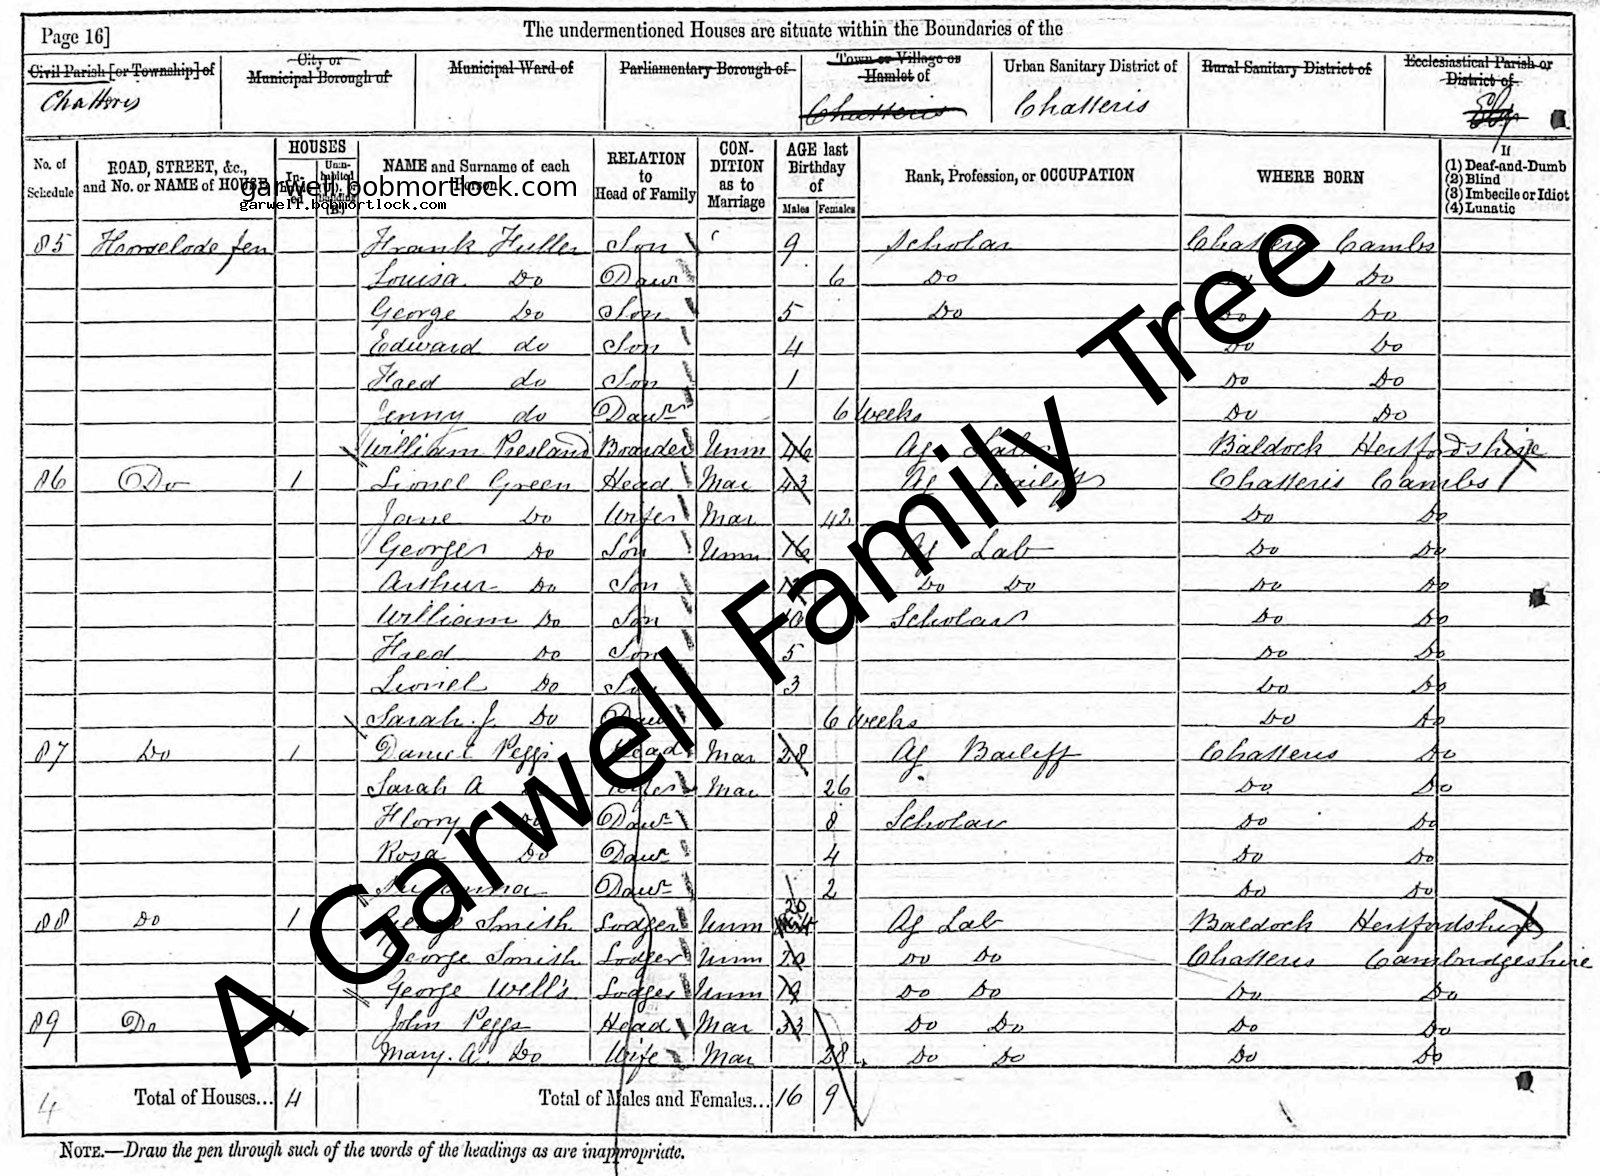 Page 16]
The undermentioned Houses are situate within the Boundaries of the
Civil Parish [or Township] of
City or Municipal Borough of
Municipal Ward of
Parliamentary Borough of
Town or Village or Hamlet of
Urban Sanitary District of
Rural Sanitary District of
Ecclesiastical Parish or District of
Chatteris Chatteris Chatteris Ely
No. of Schedule
ROAD, STREET, &c., and No. or NAME of HOUSE
HOUSES
NAME and Surname of each
RELATION to Head of Family
CONDITION as to Marriage
AGE last Birthday of
Males Females
Rank, Profession, or OCCUPATION
WHERE BORN
If
(1) Deaf-and-Dumb
(2) Blind
(3) Imbecile or Idiot
(4) Lunatic
garwell.bobmortlock.com
garwell.bobmortlock.com
85 Horselode fen Frank Fuller Son 9 Scholar Chatteris Cambs
Louisa Do Daur 6 Do Do Do
George Do Son 5 Do Do Do
Edward do Son 4 Do Do
Fred do Son 1 Do Do
Jenny do Daur 6 Weeks Do Do
William Presland Boarder Unm 46 Ag Baldock Hertfordshire
86 Do 1 Lionel Green Head Mar 43 Ag Bailiff Chatteris Cambs
Jane Do Wife Mar 42 Do Do
George Do Son Unm 16 Ag Lab Do Do
Arthur Do Son Do Do Do Do
William Do Son 10 Scholar Do Do
Fred Do Son 5 Do Do
Lionel Do Son 3 Do Do
Sarah J Do Daur 6 Weeks Do Do
87 Do 1 Daniel Peggs Head Mar 28 Ag Bailiff Chatteris Do
Sarah A Wife Mar 26 Do Do
Florry Do Daur 8 Scholar Do Do
Rosa Do Daur 4 Do Do
Daur 2 Do Do
88 Do 1 George Smith Lodger Unm 20 Ag Lab Baldock Hertfordshire
George Smith Lodger Unm 20 Do Do Chatteris Cambridgeshire
George Well's Lodger Unm 19 Do Do Do Do
89 Do 1 John Peggs Head Mar 33 Do Do Do Do
Mary. A. Do Wife Mar 28 Do Do Do Do
4 Total of Houses... 4 Total of Males and Females... 16 9
NOTE.—Draw the pen through such of the words of the headings as are inappropriate.
A Garwell Family Tree